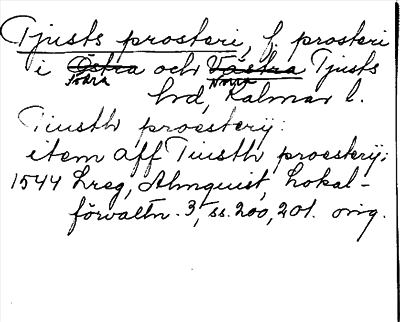 Tjusts prosteri, f. prosteri
i Östra och Västra Tjusts
Södra Norra
hrd, Kalmar l.
Tiusth proesterij:
item aff Tiusth proesterij:
1544 Lreg, Almquist, Lokal-
förvaltn. 3, ss. 200, 201. orig.